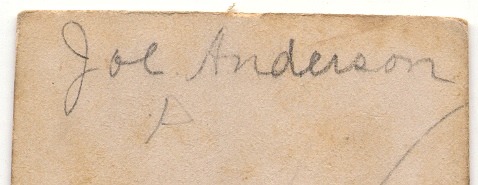 Joe Anderson
A